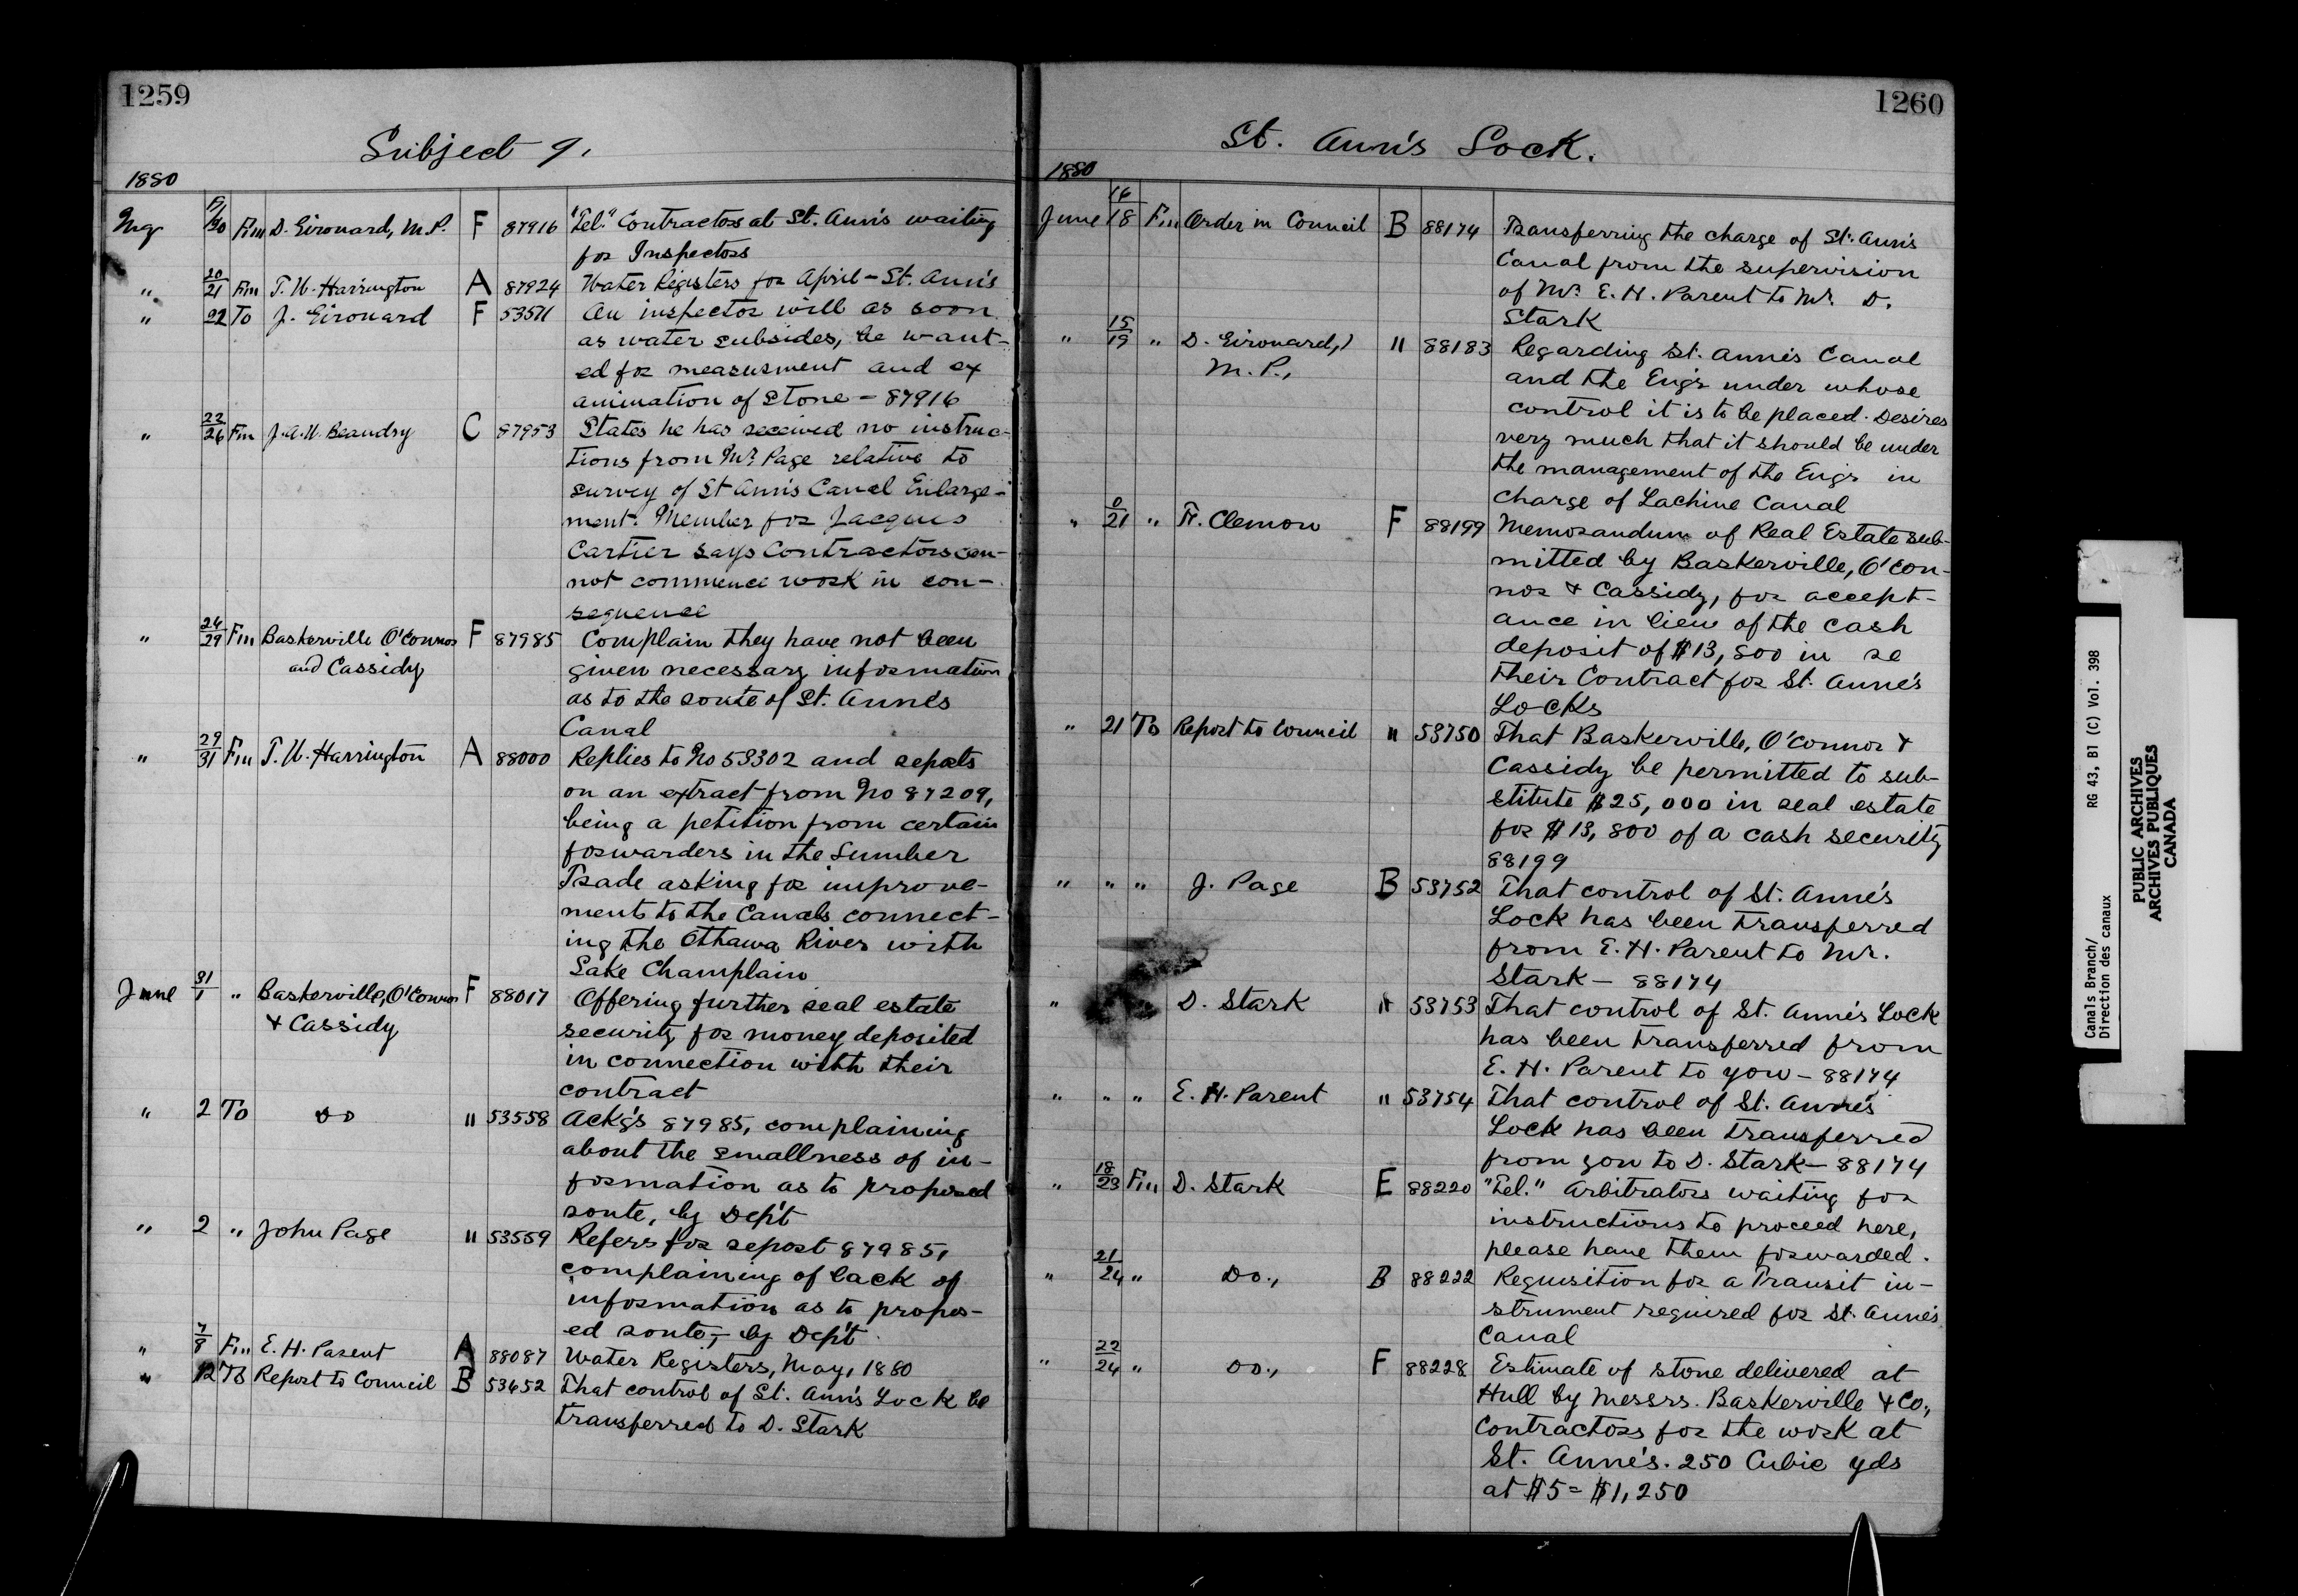 1259
Subject 9.
1880
May 19/20 Fm D. Girouard, M.P. F 87916 "Tel." Contractors at St. Ann's waiting
for Inspectors
" 20/21 Fm T. W. Harrington A 87924 Water Registers for April - St. Ann's
" 22 To J. Girouard F 53511 An inspector will as soon
as water subsides, be want-
ed for measurment and ex
amination of Stone - 87916
" 22/26 Fm J. A. U. Beaudry C 87953 States he has received no instruc-
tions from Mr. Page relative to
survey of St Ann's Canal Enlarge-
ment. Member for Jacques
Cartier says Contractors can-
not commence work in con-
sequence
" 24/29 Fm Baskerville O'Connor F 87985 Complain they have not been
and Cassidy given necessary information
as to the route of St. Anne's
Canal
" 29/31 Fm T. W. Harrington A 88000 Replies to No 53302 and reports
on an extract from No 87209,
being a petition from certain
forwarders in the Lumber
Trade asking for improve-
ments to the Canals connect-
ing the Ottawa River with
Lake Champlain
June 31/1 " Baskerville, O'Connor F 88017 Offering further real estate
& Cassidy security for money deposited
in connection with their
contract
" 2 To Do " 53558 Ackg's 87985, complaining
about the smallness of in-
formation as to proposed
route, by Dep't
" 2 " John Page " 53559 Refers for report 87985,
complaining of lack of
information as to propos-
ed route,- by Dep't
" 7/8 Fm E. H. Parent A 88087 Water Registers, May, 1880
" 12 To Report to Council B 53652 That control of St. Ann's Lock be
transferred to D. Stark
1260
St. Ann's Lock.
1880
June 16/18 Fm Order in Council B 88174 Transferring the charge of St. Ann's
Canal from the supervision
of Mr. E. H. Parent to Mr. D.
Stark
" 15/19 " D. Girouard, " 88183 Regarding St. Anne's Canal
M. P., and the Eng'r under whose
control it is to be placed. Desires
very much that it should be under
the management of the Eng'r in
charge of Lachine Canal
" 0/21 " F. Clemow F 88199 Memorandum of Real Estate sub-
mitted by Baskerville, O'Con-
nor & Cassidy, for accept-
ance in lieu of the cash
deposit of $13,800 in re
their Contract for St. Anne's
Locks
" 21 To Report to Council " 53750 That Baskerville, O'Connor &
Cassidy be permitted to sub-
stitute $25,000 in real estate
for $13,800 of a cash security
88199
" " " J. Page B 53752 That control of St. Anne's
Lock has been transferred
from E. H. Parent to Mr.
Stark - 88174
" D. Stark " 53753 That control of St. Anne's Lock
has been transferred from
E. H. Parent to you - 88174
" " " E. H. Parent " 53754 That control of St. Anne's
Lock has been transferred
from you to D. Stark - 88174
" 18/23 Fm D. Stark E 88220 "Tel." Arbitrators waiting for
instructions to proceed here,
please have them forwarded.
" 21/24 " Do., B 88222 Requisition for a Transit in-
strument required for St. Anne's
Canal
" 22/24 " Do., F 88228 Estimate of stone delivered at
Hull by Messrs. Baskerville & Co.,
Contractors for the work at
St. Anne's. 250 Cubic yds
at $5 = $1,250
Canals Branch/ RG 43, B1 (C) Vol. 398
Direction des canaux
PUBLIC ARCHIVES
ARCHIVES PUBLIQUES
CANADA